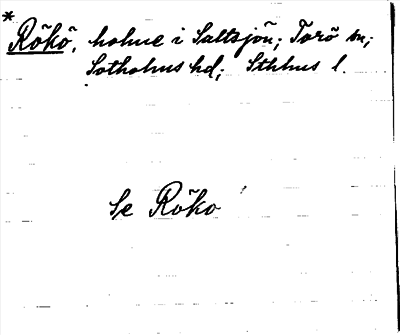 * Rökö, holme i Saltsjön; Torö sn;
Sotholms hd; Sthlms l.
Se Röko